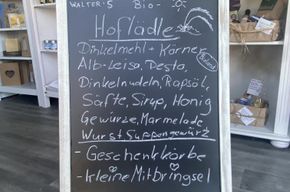 WALTER'S BIO-
Hoflädle
Dinkelmehl + Körner
Alb-Leisa, Pesta,
Dinkelnudeln, Rapsöl,
Säfte, Sirup, Honig
Gewürze, Marmelade
Wurst Suppengewürz
- Geschenkkörbe
- kleine Mitbringsel